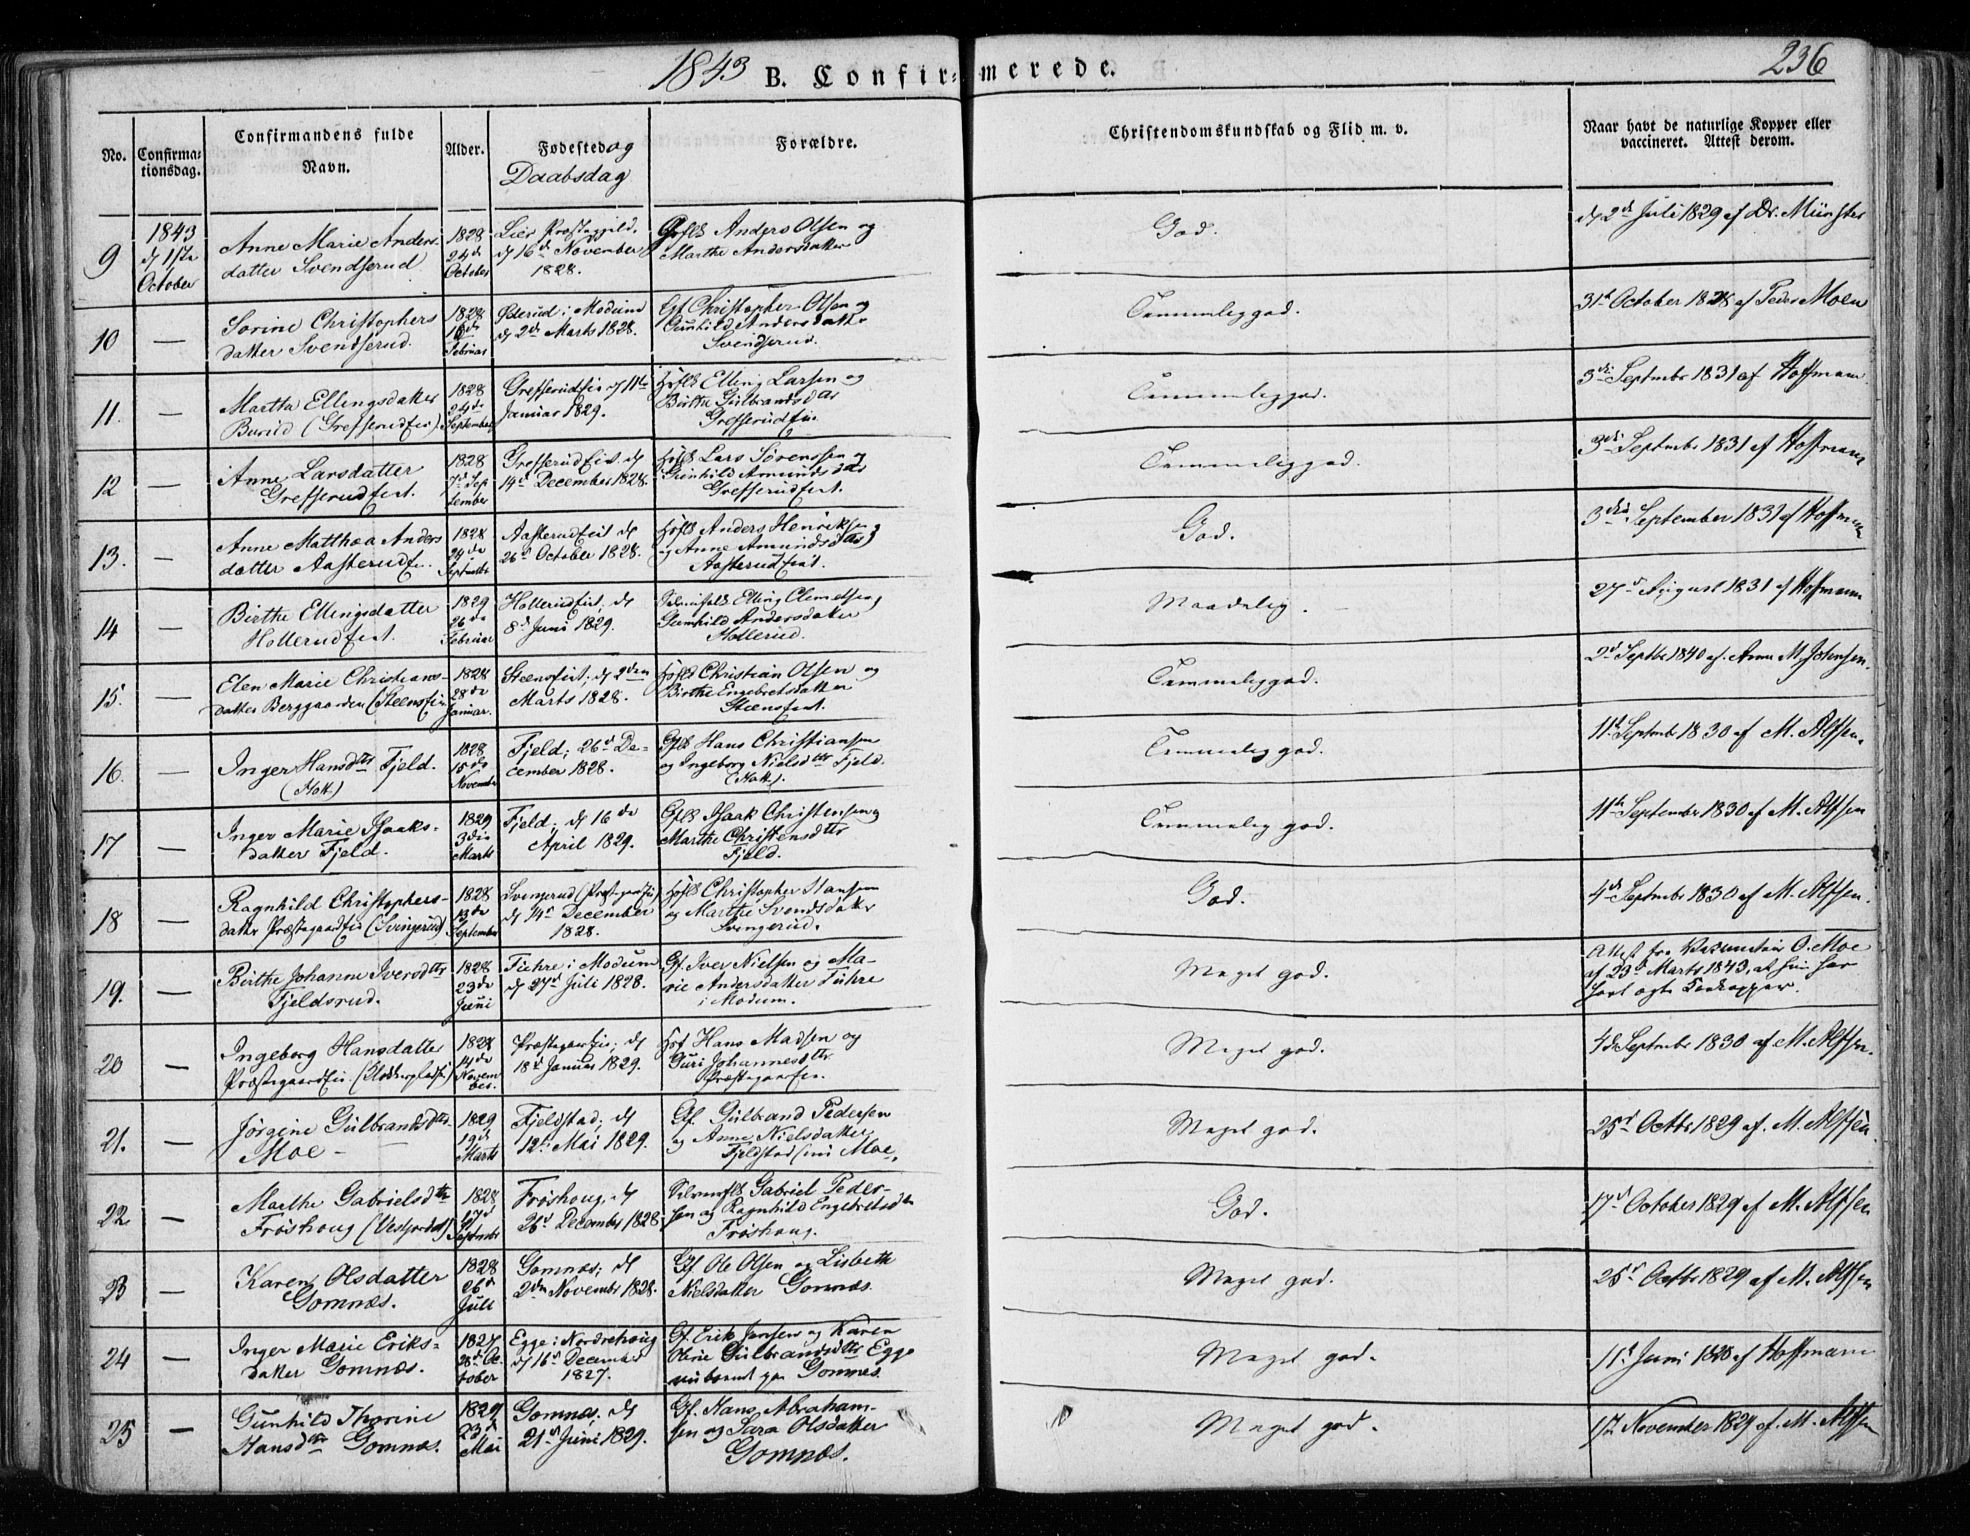 1843 B. Confirmerede. 236
No.
Confirma-
tionsdag.
Confirmandens fulde
Navn.
Alder.
Fødestedog
Daabsdag
Forældre.
Christendomskundskab og Flid m. v.
Naar havt de naturlige Kopper eller
vaccineret. Attest derom.
9
1843
d 1ste
October
Anne Marie Anders
datter Svendsrud
1828
24de
October
Lier Præstegjeld.
d 16de November
1828.
Gfolk Anders Olsen og
Marthe Andersdatter
God.
d 2d Juli 1829 af Dr. Münster
10
—
Sorine Christophers
datter Svendsrud.
1828
Februar
i Modum
d 2d Marts 1828.
Gf Christopher Olsen og
Gunhild Andersdatter
Svendsrud.
Temmeliggod.
31t October 1828 af Peder Moen
11.
—
Martha Ellingsdatter
Burud (Grefsrudeie).
1828
24de
September
Grefsrudeie d 11te
Januar 1829.
Hfolk Elling Larsen og
Birthe Gulbrandsdatter
Grefsrudeie
Temmeliggod.
3die Septembr 1831 af Hoffmann
12
—
Anne Larsdatter
Grefsrudeiet.
1828
7d Sep
tember
Grefsrudeiet. d
14d December 1828.
Hfolk Lars Sørenssen og
Gunhild Amundsdatter
Grefsrudeiet.
Temmeliggod.
3die Septembr 1831 af Hoffmann
13.
—
Anne Matthea Anders
datter Aasterudeie.
1828
24de
Septembr
Aasterudeiet d
26d October 1828.
Hfolk Anders Henriksen
og Anne Amundsdatter
Aasterudeiet.
God.
3die September 1831 af Hoffmann
14
—
Birthe Ellingsdatter
Hollerudeiet.
1829
26de
Februar
Hollerudeiet. d
8d Juni 1829.
Elling Clemetsen og
Gunhild Andersdatter
Hollerud.
Maadelig.
27d August 1831 af Hoffmann
15.
—
Elen Marie Christians-
datter Berggaarden (Steenseie)
1828
28de
Januar.
Steenseiet. d 2den
Marts 1828.
Hfolk Christian Olsen og
Birthe Engebretsdatter
Steenseiet.
Temmeliggod.
2d Septbr 1840 af. Anne M. Johnsen.
16.
—
Inger Hansdtr Fjeld.
1828
15de
November
Fjeld; 26d De-
cember 1828.
Gfolk Hans Christiansen
og Ingeborg Nielsdtr Fjeld.
Temmelig god.
11te Septembr 1830 af M. Alfsen.
17
—
Inger Marie Isaaks-
datter Fjeld.
1829
3die
Marts
Fjeld. d 16de
April 1829.
Gfolk Isaak Christensen og
Marthe Christensdtr
Fjeld.
Temmelig god.
11te September 1830 af M. Alfsen
18
—
Ragnhild Christophers-
datter Præstegaardeie (Svingerud)
1828
13de
September
Svingerud (Præstegaardeie)
d 14d December
1828.
Hfolk Christopher Hansen
og Marthe Svendsdatter
Svingerud.
God.
4de Septembr 1830 af M. Alfsen.
19.
—
Birthe Johanne Iversdtr
Fjeldsrud.
1828
23de
Juni
Fuhre i Modum
d 27d Juli 1828.
Gf. Iver Nielsen og Ma-
rie Andersdatter Fuhre
i Modum.
Meget god.
Attest fra O. Moe
af 29d Marts 1843, at hun har
havt
20
—
Ingeborg Hansdatter
Præstegaardeie.
1828
14de
Novem
ber.
Præstegaardeie; d
18d Januar 1829.
Hf Hans Madsen og
Guri Johannesdtr
Præstegaardeie.
Meget god.
4de Septembr 1830 af M. Alfsen.
21.
—
Jørgine Gulbrandsdtr
Moe -
1829
19d
Marts
Fjeldstad; d
12te Mai 1829.
Gf. Gulbrand Pedersen
og Anne Nielsdatter
Fjeldstad (nu Moe,
Meget god.
25d Octbr 1829 af. M. Alfsen.
22
—
Marthe Gabrielsdtr
Frøshoug
1828
17d
Septembr
Frøshoug, d
26d December 1828.
Gabriel Peder-
sen og Ragnhild Engebretsdtr
Frøshoug.
God.
17d October 1829 af M. Alfsen
23
—
Karen Olsdatter
Gomnæs.
1828
26d
Juli
Gomnæs; d
2den November 1828.
Gf. Ole Olsen og Lisbeth
Nielsdatter Gomnæs.
Meget god.
25d Octbr 1829 af M. Alfsen
24
—
Inger Marie Eriks-
datter Gomnæs.
1827
28d Oc
tober
Egge i Nordrehoug
d 16d December
1827.
Gf. Erik Jensen og Karen
Oline Gulbrandsdtr Egge
nu boende paa Gomnes.
Meget god.
11t Juni 1828 af Hoffmann
25
—
Gunhild Thorine
Hansdtr Gomnæs.
1829
23d
Mai
Gomnæs. d
21d Juni 1829.
Gf. Hans Abraham-
sen og Sara Olsdatter
Gomnæs.
Meget god.
17d November 1829 af. M. Alfsen